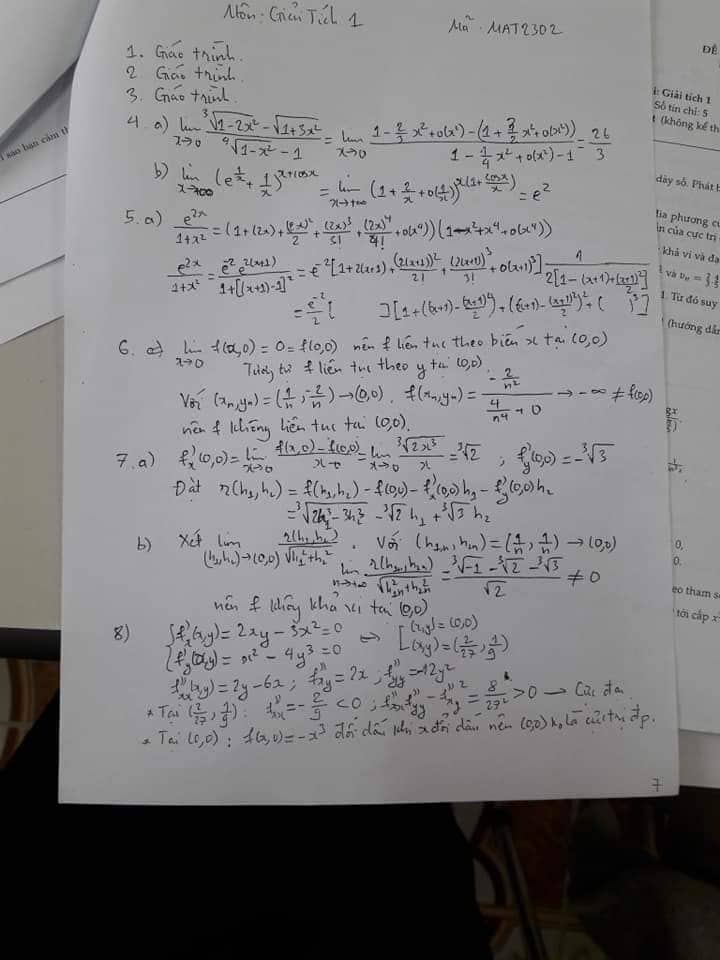 Môn: Giải Tích 1
Mã: MAT2302
1. Giáo trình.
2. Giáo trình.
3. Giáo trình.
4. a) lim_{x→0} (∛(1-2x²) - √(1+3x²)) / (∜(1-x²) - 1) = lim_{x→0} (1 - 2/3 x² + o(x²) - (1 + 3/2 x² + o(x²))) / (1 - 1/4 x² + o(x²) - 1) = 26/3
b) lim_{x→+∞} (e^{1/x} + 1/x)^{x+cosx} = lim_{x→+∞} (1 + 2/x + o(1/x))^{x(1+cosx/x)} = e²
5. a) e^{2x}/(1+x²) = (1 + (2x) + (2x)²/2 + (2x)³/3! + (2x)⁴/4! + o(x⁴))(1 - x² + x⁴ + o(x⁴))
e^{2x}/(1+x²) = e^{-2}e^{2(x+1)}/(1+[(x+1)-1]²) = e^{-2}[1 + 2(x+1) + (2(x+1))²/2! + (2(x+1))³/3! + o(x+1)³] 1/(2[1-(x+1)+(x+1)²/2])
= e^{-2}/2 [ ][1 + ((x+1) - (x+1)²/2) + ((x+1) - (x+1)²/2)² + ( )³]
6. a) lim_{x→0} f(x,0) = 0 = f(0,0) nên f liên tục theo biến x tại (0,0)
Tương tự f liên tục theo y tại (0,0)
Với (xₙ,yₙ) = (1/n, -2/n) → (0,0). f(xₙ,yₙ) = (-2/n²)/(4/n⁴ + 0) → -∞ ≠ f(0,0)
nên f không liên tục tại (0,0).
7. a) f'ₓ(0,0) = lim_{x→0} (f(x,0) - f(0,0))/(x-0) = lim_{x→0} ∛(2x³)/x = ∛2 ; f'_y(0,0) = -∛3
Đặt r(h₁,h₂) = f(h₁,h₂) - f(0,0) - f'ₓ(0,0)h₁ - f'_y(0,0)h₂
= ∛(2h₁³ - 3h₂³) - ∛2 h₁ + ∛3 h₂
b) Xét lim_{(h₁,h₂)→(0,0)} r(h₁,h₂)/√(h₁²+h₂²). Với (h₁ₙ,h₂ₙ) = (1/n, 1/n) → (0,0)
lim_{n→+∞} r(h₁ₙ,h₂ₙ)/√(h₁ₙ²+h₂ₙ²) = (∛-1 - ∛2 - ∛3)/√2 ≠ 0
nên f không khả vi tại (0,0)
8) { f'ₓ(x,y) = 2xy - 3x² = 0 ⇔ [ (x,y) = (0,0)
{ f'_y(x,y) = x² - 4y³ = 0 [ (x,y) = (2/27, 1/9)
f''ₓₓ(x,y) = 2y - 6x ; f''ₓ_y = 2x ; f''_yy = -12y²
* Tại (2/27, 1/9): f''ₓₓ = -2/9 < 0 ; f''ₓₓf''_yy - f''ₓ_y² = 8/27² > 0 → Cực đại
* Tại (0,0): f(x,0) = -x³ đổi dấu khi x đổi dấu nên (0,0) ko là cực trị đp.
7
ĐỀ
: Giải tích 1
Số tín chỉ: 5
(không kể th
dãy số. Phát b
địa phương c
của cực trị
khả vi và đạ
. Từ đó suy
(hướng dẫn
eo tham s
tới cấp x
i sao bạn cảm th